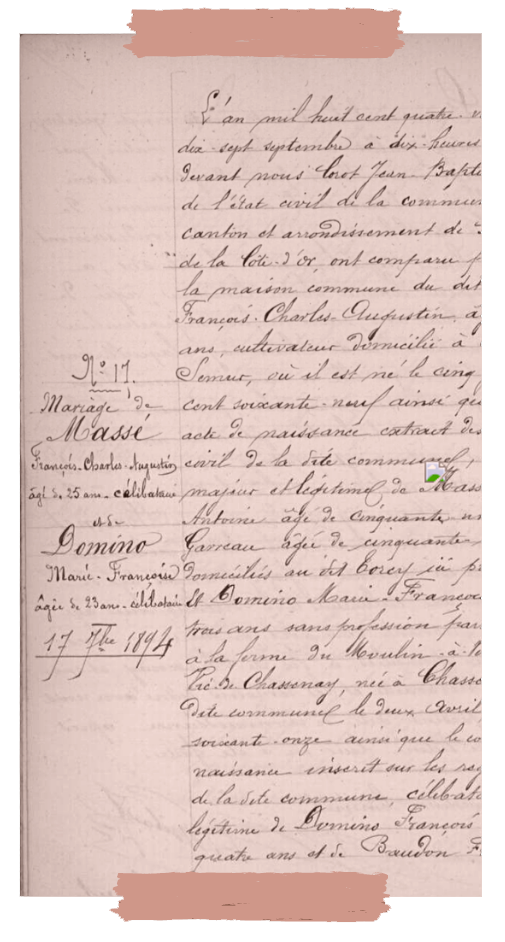 N° 17.
Mariage de
Masse
François-Charles-Augustin
âgé de 25 ans - célibataire
et de
Domino
Marie-Françoise
âgée de 23 ans - célibataire
17 7bre 1894
L'an mil huit cent quatre-
dix-sept septembre à dix-heures
devant nous Corot Jean-Bapte
de l'état civil de la commun
canton et arrondissement de
de la Côte-d'or, ont comparu
la maison commune du dit
François-Charles-Augustin, â
ans, cultivateur domicilié à
Semur, où il est né le cinq
cent soixante-neuf ainsi que
acte de naissance extrait des
civil de la dite commune,
majeur et légitime de Mass
Antoine âgé de cinquante
Garreau âgée de cinquante
domiciliés au dit ici
Et Domino Marie-Franço
trois ans sans profession
à la ferme du Moulin-à-
Pré-de Chassenay, née à Chass
dite commune le deux Avril
soixante-onze ainsi que le
naissance inscrit sur les reg
de la dite commune, célibat
légitime de Domino François
quatre ans et de Baudon